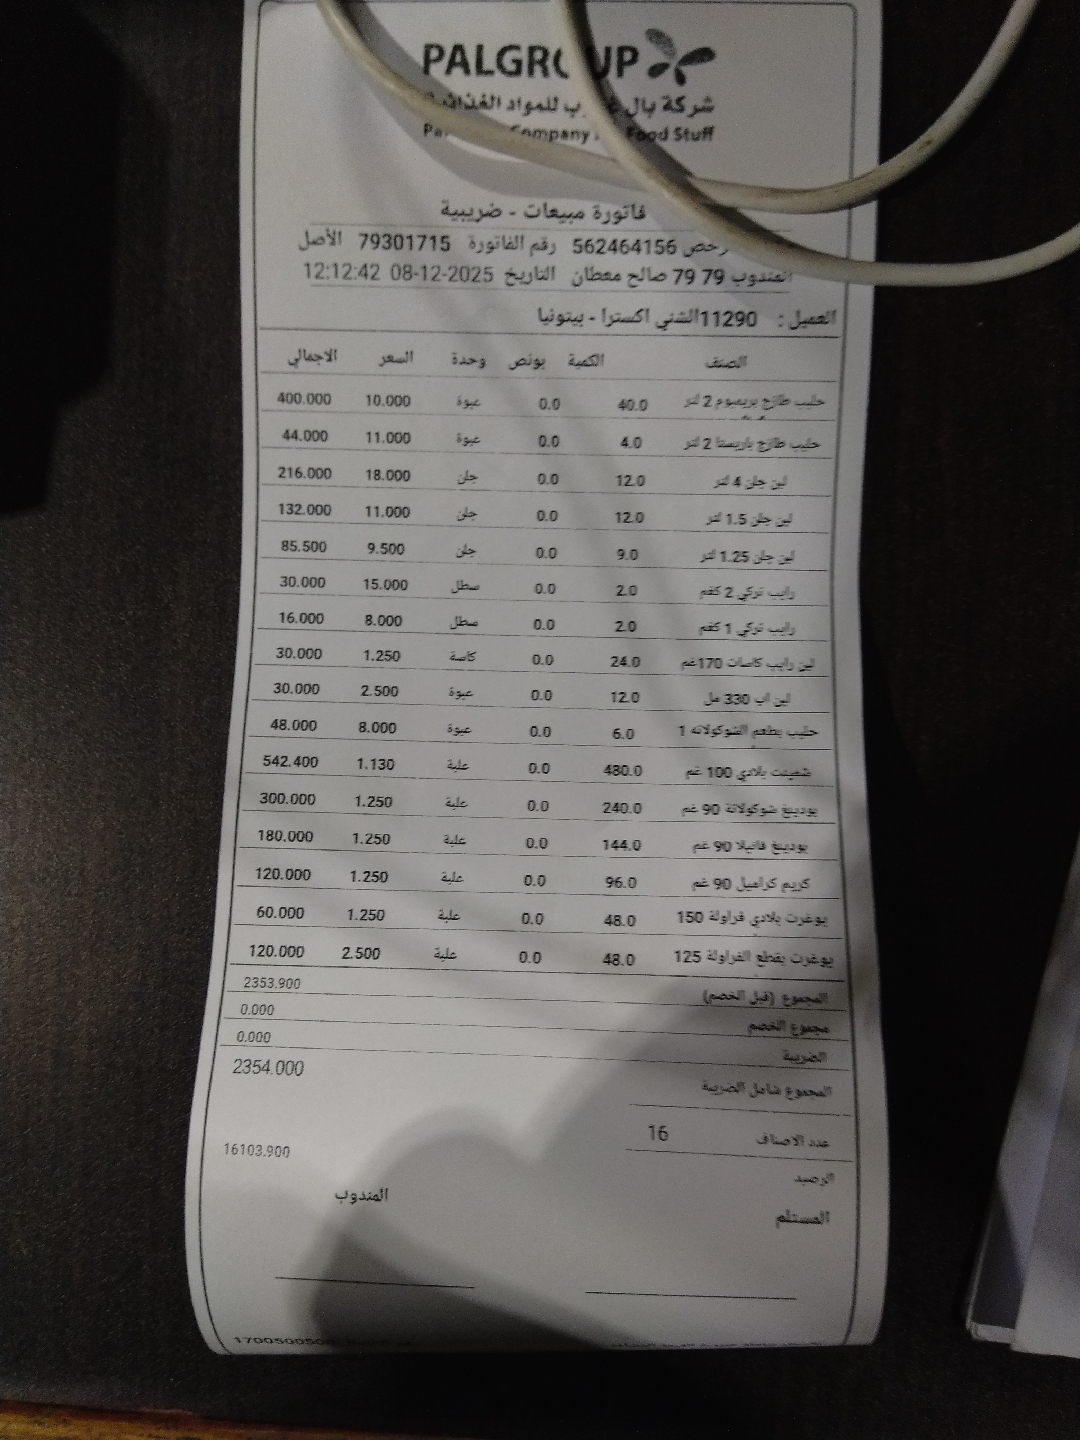 PALGROUP
شركة بال للمواد الغذائية
Company Food Stuff
فاتورة مبيعات - ضريبية
562464156 رقم الفاتورة 79301715 الأصل
المندوب 79 79 صالح معطان التاريخ 08-12-2025 12:12:42
العميل : 11290الشني اكسترا - بيتونيا
الصنف الكمية بونص وحدة السعر الاجمالي
حليب طازج بريميوم 2 لتر 40.0 0.0 عبوة 10.000 400.000
حليب طازج باريستا 2 لتر 4.0 0.0 عبوة 11.000 44.000
لبن جلن 4 لتر 12.0 0.0 جلن 18.000 216.000
لبن جلن 1.5 لتر 12.0 0.0 جلن 11.000 132.000
لبن جلن 1.25 لتر 9.0 0.0 جلن 9.500 85.500
رايب تركي 2 كغم 2.0 0.0 سطل 15.000 30.000
رايب تركي 1 كغم 2.0 0.0 سطل 8.000 16.000
لبن رايب كاسات 170غم 24.0 0.0 كاسة 1.250 30.000
لبن اب 330 مل 12.0 0.0 عبوة 2.500 30.000
حليب بطعم الشوكولاته 1 6.0 0.0 عبوة 8.000 48.000
شمينت بلادي 100 غم 480.0 0.0 علبة 1.130 542.400
بودينغ شوكولاتة 90 غم 240.0 0.0 علبة 1.250 300.000
بودينغ فانيلا 90 غم 144.0 0.0 علبة 1.250 180.000
كريم كراميل 90 غم 96.0 0.0 علبة 1.250 120.000
يوغرت بلادي فراولة 150 48.0 0.0 علبة 1.250 60.000
يوغرت بقطع الفراولة 125 48.0 0.0 علبة 2.500 120.000
المجموع (قبل الخصم) 2353.900
مجموع الخصم 0.000
الضريبة 0.000
المجموع شامل الضريبة 2354.000
عدد الاصناف 16
الرصيد 16103.900
المستلم المندوب